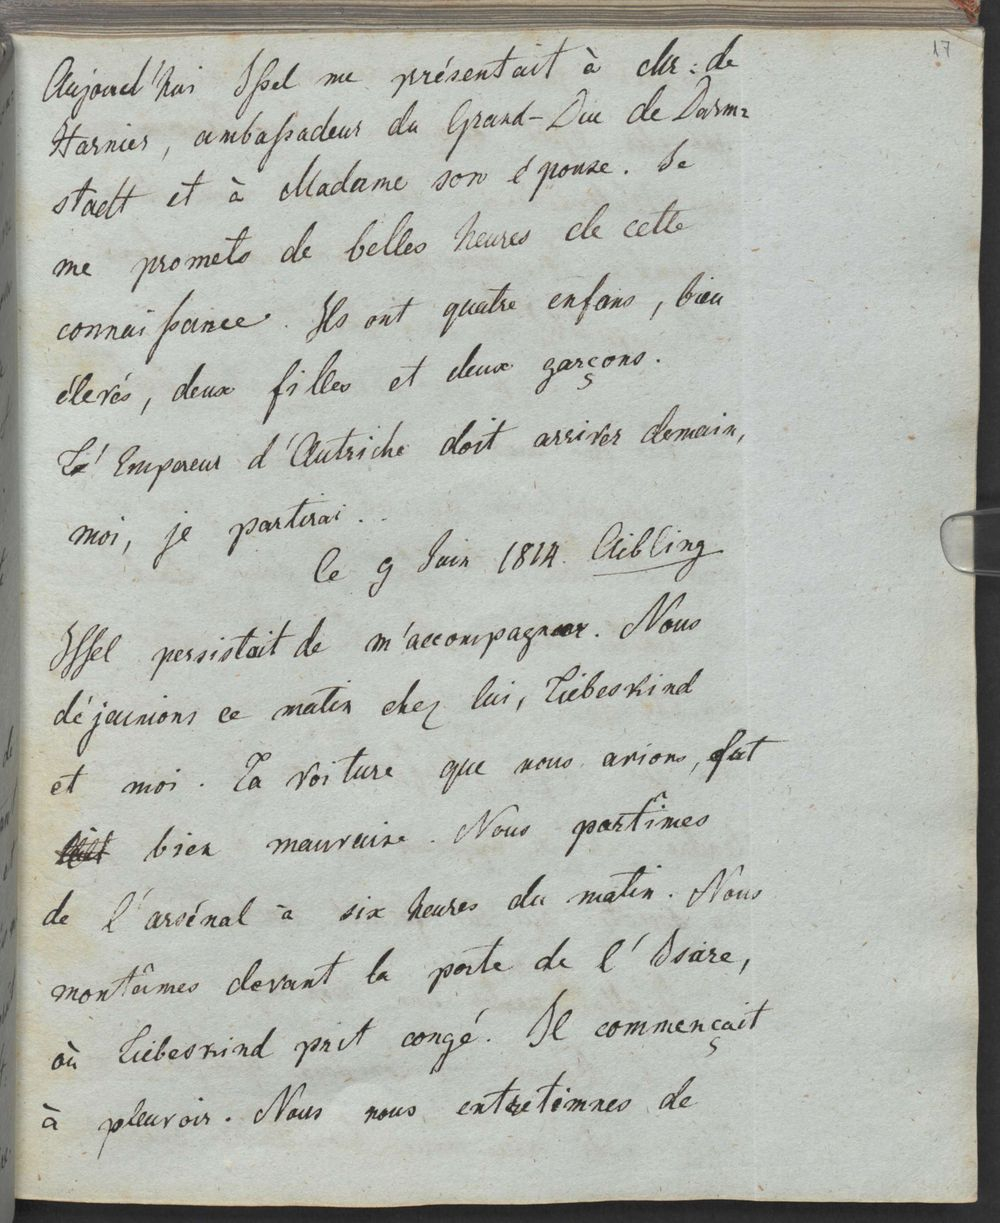 17
Aujourd'hui Issel me présentait à Mr: de
Harnier, ambassadeur du Grand-Duc de Darm=
stadt et à Madame son épouse. Je
me promets de belles heures de cette
connaissance. Ils ont quatre enfans, bien
élevés, deux filles et deux garçons.
L'Empereur d'Autriche doit arriver demain,
moi, je partirai..
Ce 9 Juin 1814. Aibling
Issel persistait de m'accompagner. Nous
déjeunions ce matin chez lui, Liebeskind
et moi. La voiture que nous avions, fut
bien mauvaise. Nous partîmes
de l'arsénal à six heures du matin. Nous
montâmes devant la porte de l'Isare,
où Liebeskind prit congé. Il commençait
à pleuvoir. Nous nous entretinmes de